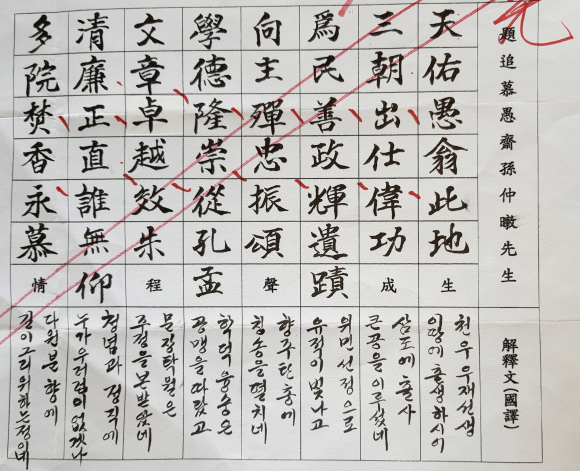 題追慕愚齋孫仲暾先生
天佑愚翁此地生
三朝出仕偉功成
爲民善政輝遺蹟
向主殫忠振頌聲
學德隆崇從孔孟
文章卓越效朱程
清廉正直誰無仰
多院焚香永慕情
解釋文(國譯)
천우 우재선생
이땅에 출생하시어
삼조에 출사
큰공을 이르셨네
위민선정으로
유적이 빛나고
향주탄충에
칭송을 떨치네
학덕융숭은
공맹을 따랐고
문장탁월은
주정을 본받았네
청념과 정직에
누가 우러럼이 없겠나
다원분향에
길이 그리워하는 정이네